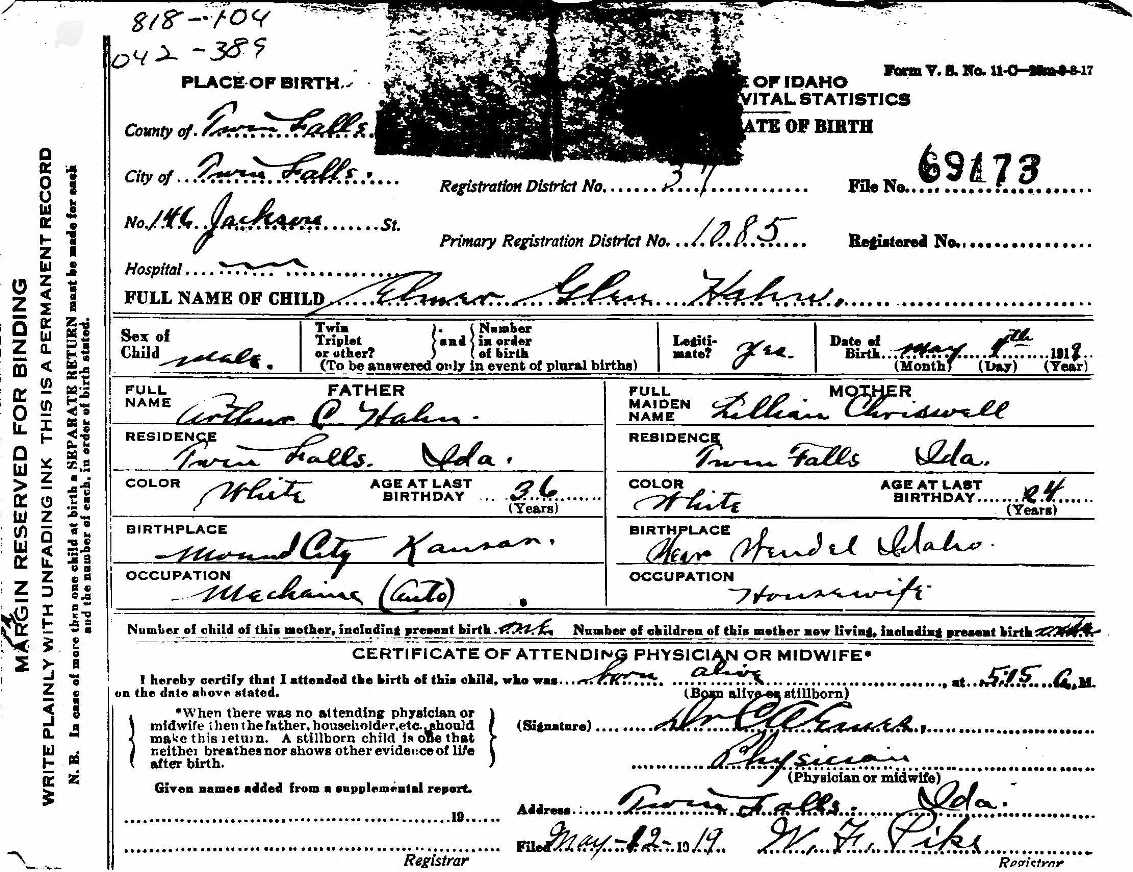 818-104
042-389
Form V. S. No. 11-C-25m-9-8-17
PLACE OF BIRTH
E OF IDAHO
VITAL STATISTICS
County of Twin Falls
ATE OF BIRTH
City of Twin Falls
Registration District No. 37
File No. 69173
No. 146 Jackson St.
Primary Registration District No. 1085
Registered No.
Hospital
FULL NAME OF CHILD Elmer Glen Hahn.
Sex of Child male.
Twin Triplet or other? and Number in order of birth
(To be answered only in event of plural births)
Legitimate? Yes.
Date of Birth May 9th 1919
(Month) (Day) (Year)
FATHER
FULL NAME Arthur C. Hahn.
MOTHER
FULL MAIDEN NAME Lillian Chriswell
RESIDENCE Twin Falls. Ida.
RESIDENCE Twin Falls Ida.
COLOR White AGE AT LAST BIRTHDAY 36 (Years)
COLOR White AGE AT LAST BIRTHDAY 24 (Years)
BIRTHPLACE Mound City Kansas.
BIRTHPLACE Near Wendel Idaho.
OCCUPATION Mechanic (Auto)
OCCUPATION Housewife
Number of child of this mother, including present birth one Number of children of this mother now living, including present birth one
CERTIFICATE OF ATTENDING PHYSICIAN OR MIDWIFE*
I hereby certify that I attended the birth of this child, who was born alive, at 515 A. M.
on the date above stated.
(Born alive or stillborn)
*When there was no attending physician or
midwife then the father, householder, etc., should
make this return. A stillborn child is one that
neither breathes nor shows other evidence of life
after birth.
(Signature) Dr C A
Physician
(Physician or midwife)
Given names added from a supplemental report.
19
Address: Twin Falls. Ida.
Filed May-12-1919. W. F. Pike
Registrar
Registrar
MARGIN RESERVED FOR BINDING
WRITE PLAINLY WITH UNFADING INK THIS IS A PERMANENT RECORD
N. B. In case of more then one child at birth a SEPARATE RETURN must be made for each
and the number of each, in order of birth stated.